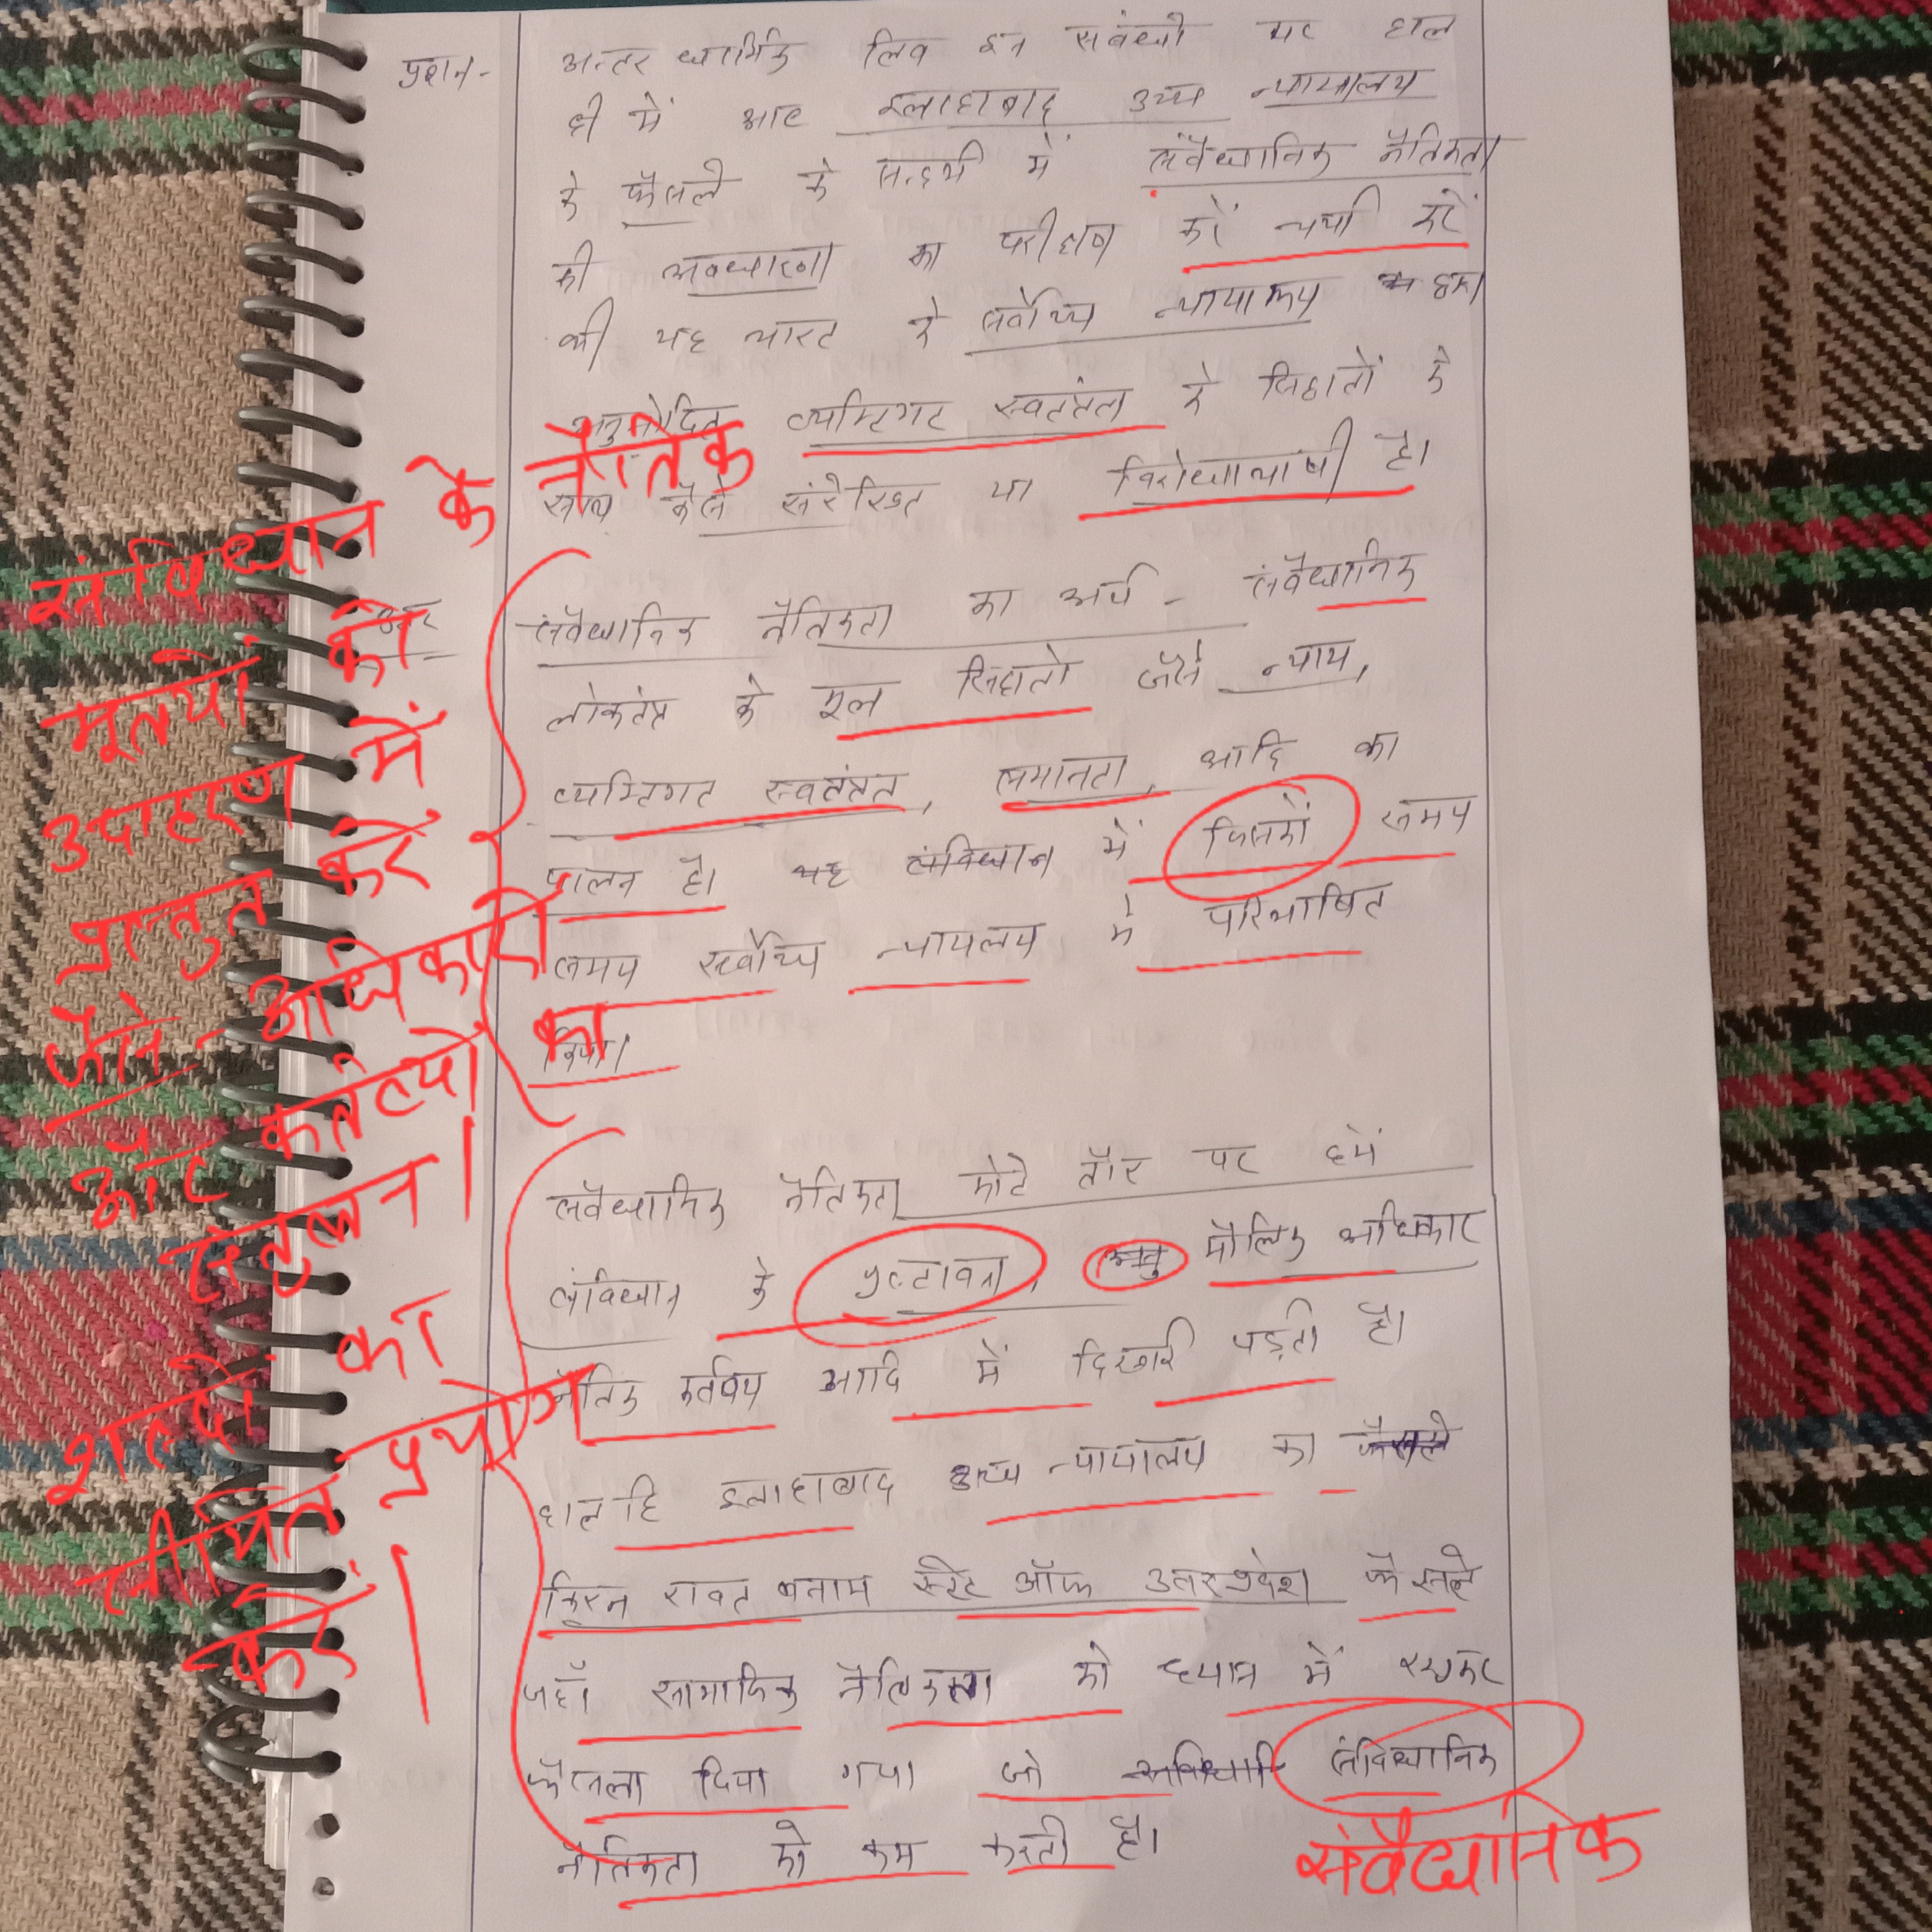 प्रशन- अन्तर धार्मिक लिव इन संबंधो पर हाल
ही में आए इलाहाबाद उच्च न्यायालय
के फैसले के सन्दर्भ में संवैधानिक नैतिकता
की अवधारणा का परीक्षण करें चर्चा करें
की यह भारत के सर्वोच्च न्यायालय द्वारा
अनुमोदित व्यक्तिगत स्वतंत्रता के सिद्दातों के
साथ कैसे संरेखित या विरोधाभाषी है।
उत्तर संवैधानिक नैतिकता का अर्थ - संवैधानिक
लोकतंत्र के मूल सिद्दातो जैसे न्याय,
व्यक्तिगत स्वतंत्रत, समानता, आदि का
पालन है। यह संविधान में जिसको समय
समय सर्वोच्च न्यायलय ने परिभाषित
किया।
संवैधानिक नैतिकता मोटे तौर पर हमें
संविधान के प्रस्तावना, मौलिक अधिकार
नैतिक कर्तव्य आदि में दिखाई पड़ती है।
हाल हि इलाहाबाद उच्च न्यायालय का फैसले
किरन रावत बनाम स्टेट ऑफ उत्तरप्रदेश फैसले
जहाँ सामाजिक नैतिकता को ध्यान में रखकर
फैसला दिया गया जो संविधानिक
नैतिकता को कम करती है।
संविधान के नैतिक
मूल्यों को
उदाहरण में
प्रस्तुत करें
जैसे - अधिकारो
और कर्तव्यों का
संतुलन।
शब्दो का
सीमित प्रयोग
करें।
संवैधानिक